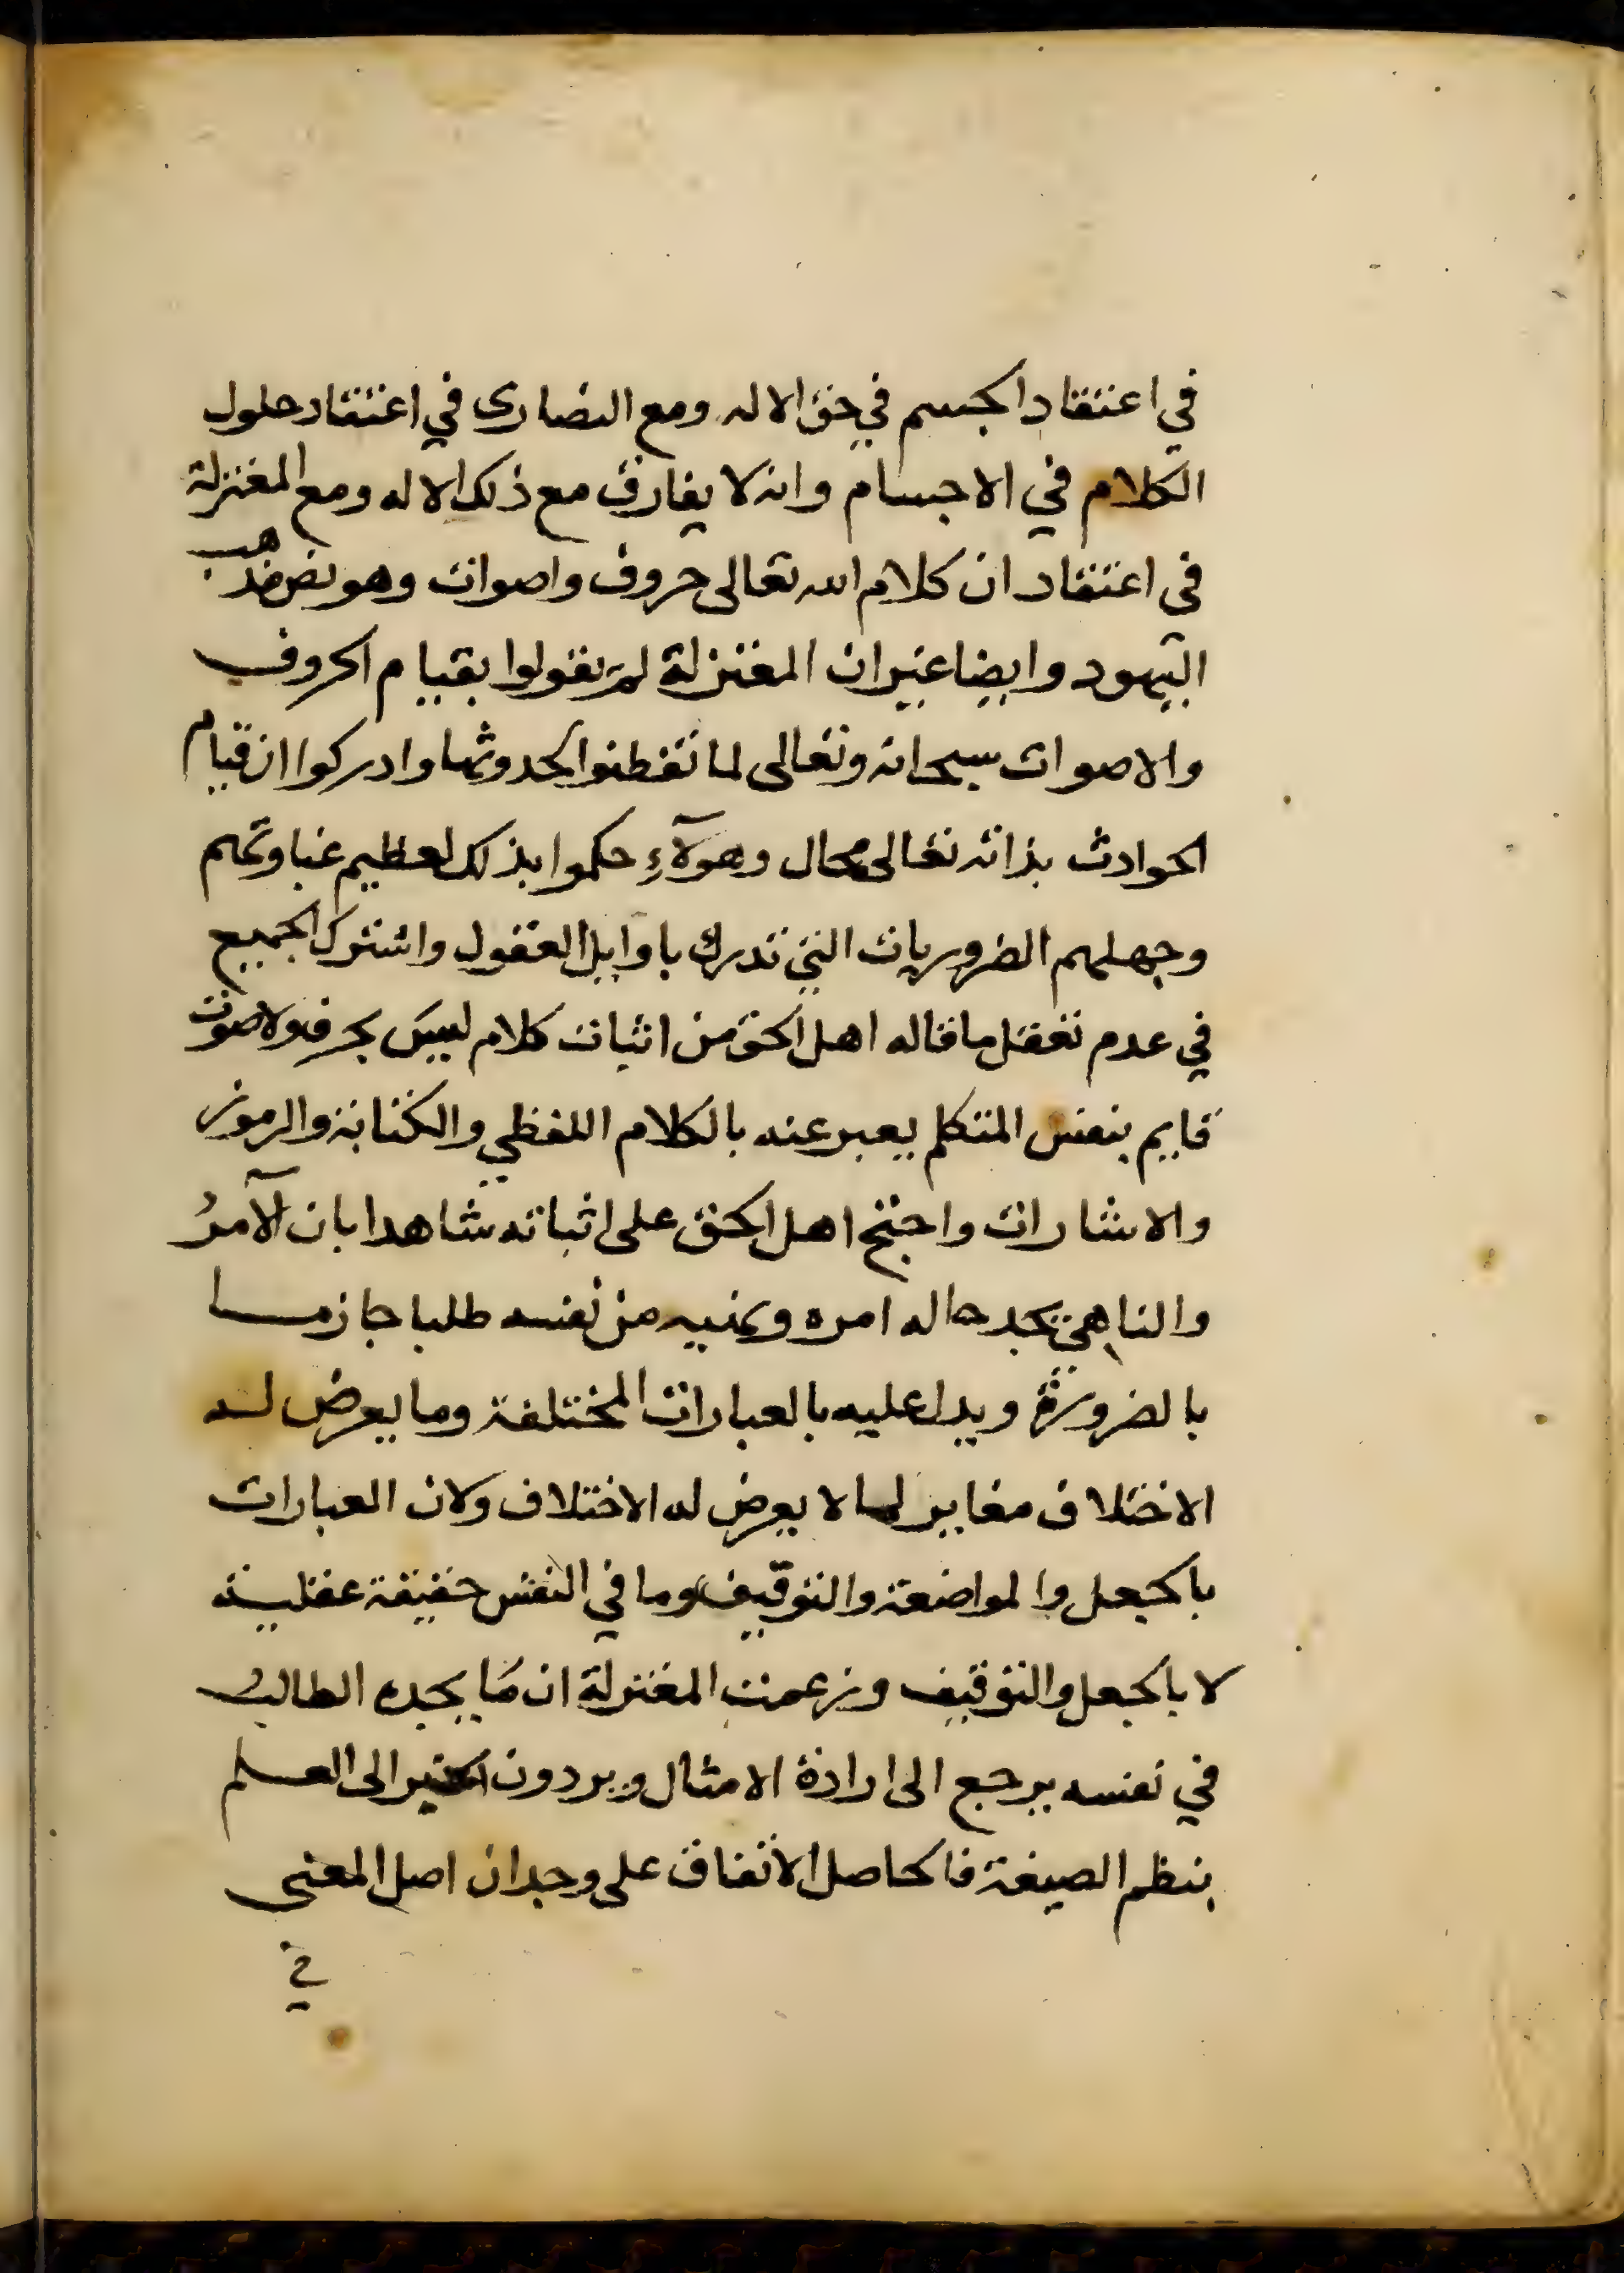 في اعتقاد الجسم في حق الاله ومع النصارى في اعتقاد حلول
الكلام في الاجسام وانه لا يفارق مع ذلك الاله ومع المعتزلة
في اعتقاد ان كلام الله تعالى حروف واصوات وهو نص مذهب
اليهود وايضا غير ان المعتزلة لم يقولوا بقيام الحروف
والاصوات سبحانه وتعالى لما تفطنوا لحدوثها وادركوا ان قيام
الحوادث بذاته تعالى محال وهولآء حكموا بذلك لعظيم غباوتهم
وجهلهم الضروريات التي تدرك باوايل العقول واشترك الجميع
في عدم تعقل ما قاله اهل الحق من اثبات كلام ليس بحرف ولا صوت
قايم بنفس المتكلم يعبر عنه بالكلام اللفظي والكتابة والرموز
والاشارات واحتج اهل الحق على اثباته شاهدا بان الآمر
والناهي يجد حاله امره ونهيه من نفسه طلبا جازما
بالضرورة ويدل عليه بالعبارات المختلفة وما يعرض له
الاختلاف مغاير لما لا يعرض له الاختلاف ولان العبارات
بالجعل والمواضعة والتوقيف وما في النفس حقيقة عقلية
لا بالجعل والتوقيف وزعمت المعتزلة ان ما يجده الطالب
في نفسه يرجع الى ارادة الامثال ويردون الخبر الى العلم
بنظم الصيغة فالحاصل الاتفاق على وجدان اصل المعنى
في